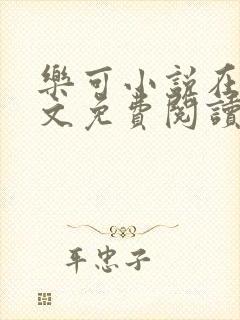 樂可小說在
文免費閱讀
年忠子